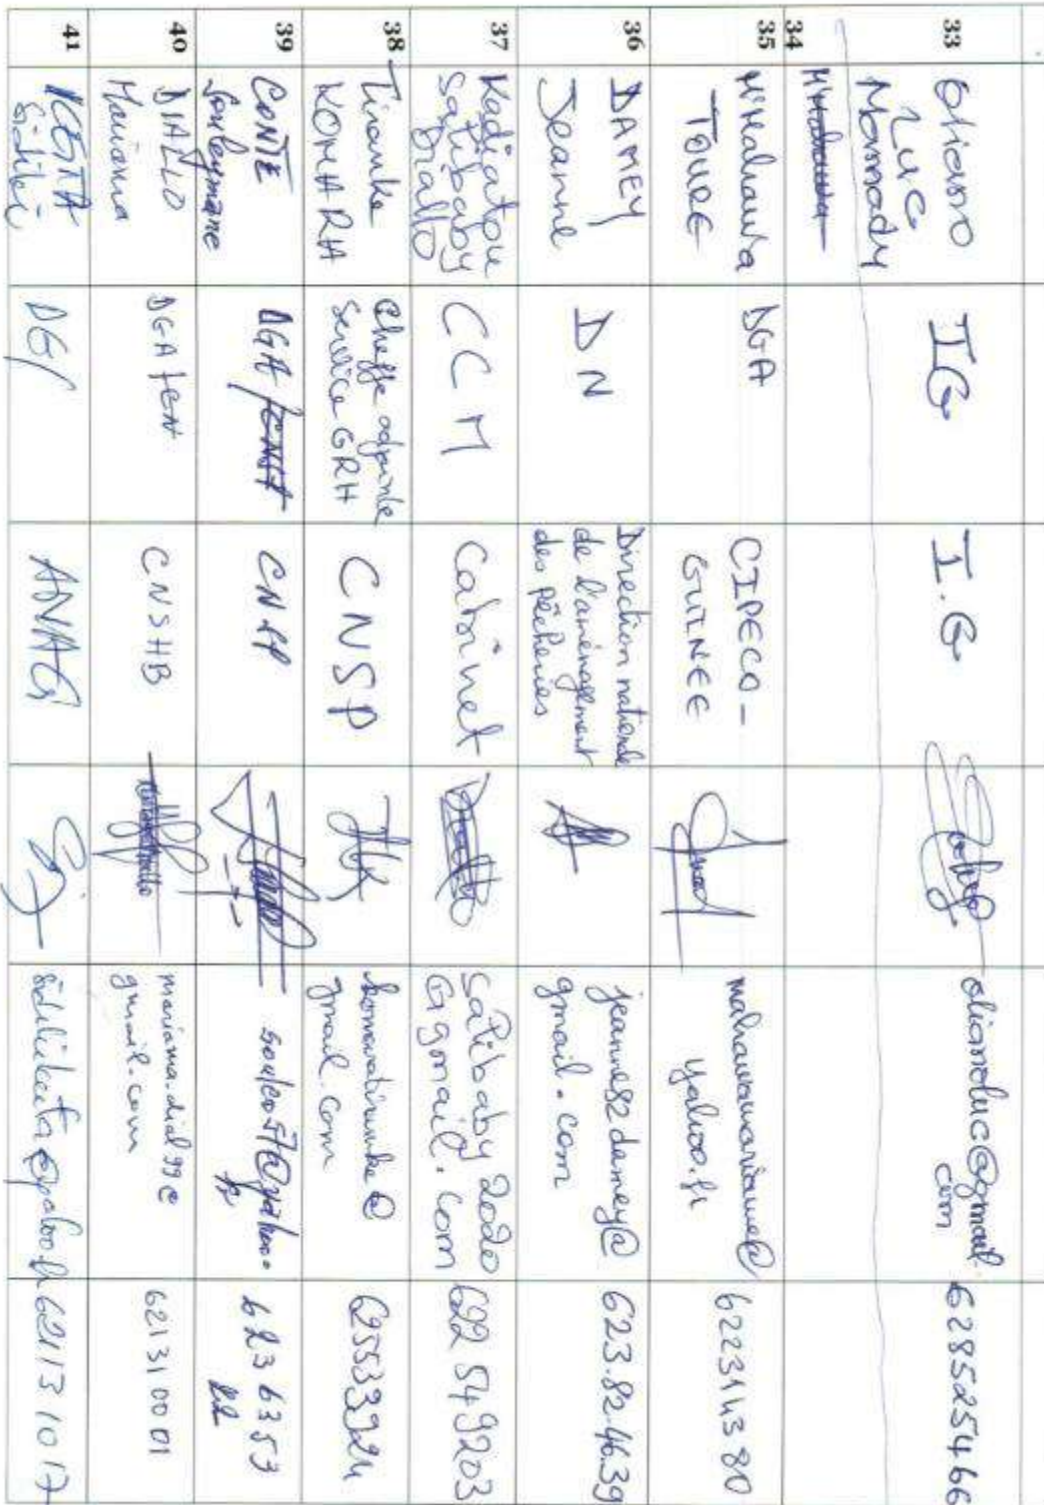 33
Oliano
Luc
Mamady
IG
I.G
olianoluc@gmail.
com
628525466
34
35
M'Mahawa
TOURE
DGA
CIPECO-
GUINEE
mahawamariame@
yahoo.fr
622314380
36
DAMEY
Jeanne
DN
Direction nationale
de l'aménagement
des pêcheries
jeanne82damey@
gmail.com
623.82.46.39
37
Kadiatou
Satibaby
Diallo
CCM
Cabinet
Satibaby2020
@gmail.com
622 549203
38
Tiranke
KOMARA
Cheffe adjointe
Service GRH
CNSP
komaratiranke@
gmail.com
625533924
39
CONTE
Souleymane
DGA
soulco57@yahoo.
fr
623 63 53
40
DIALLO
Mariama
CNSHB
mariama.dial99@
gmail.com
621310001
41
KEITA
Sidiki
DG
ANAG
621131017